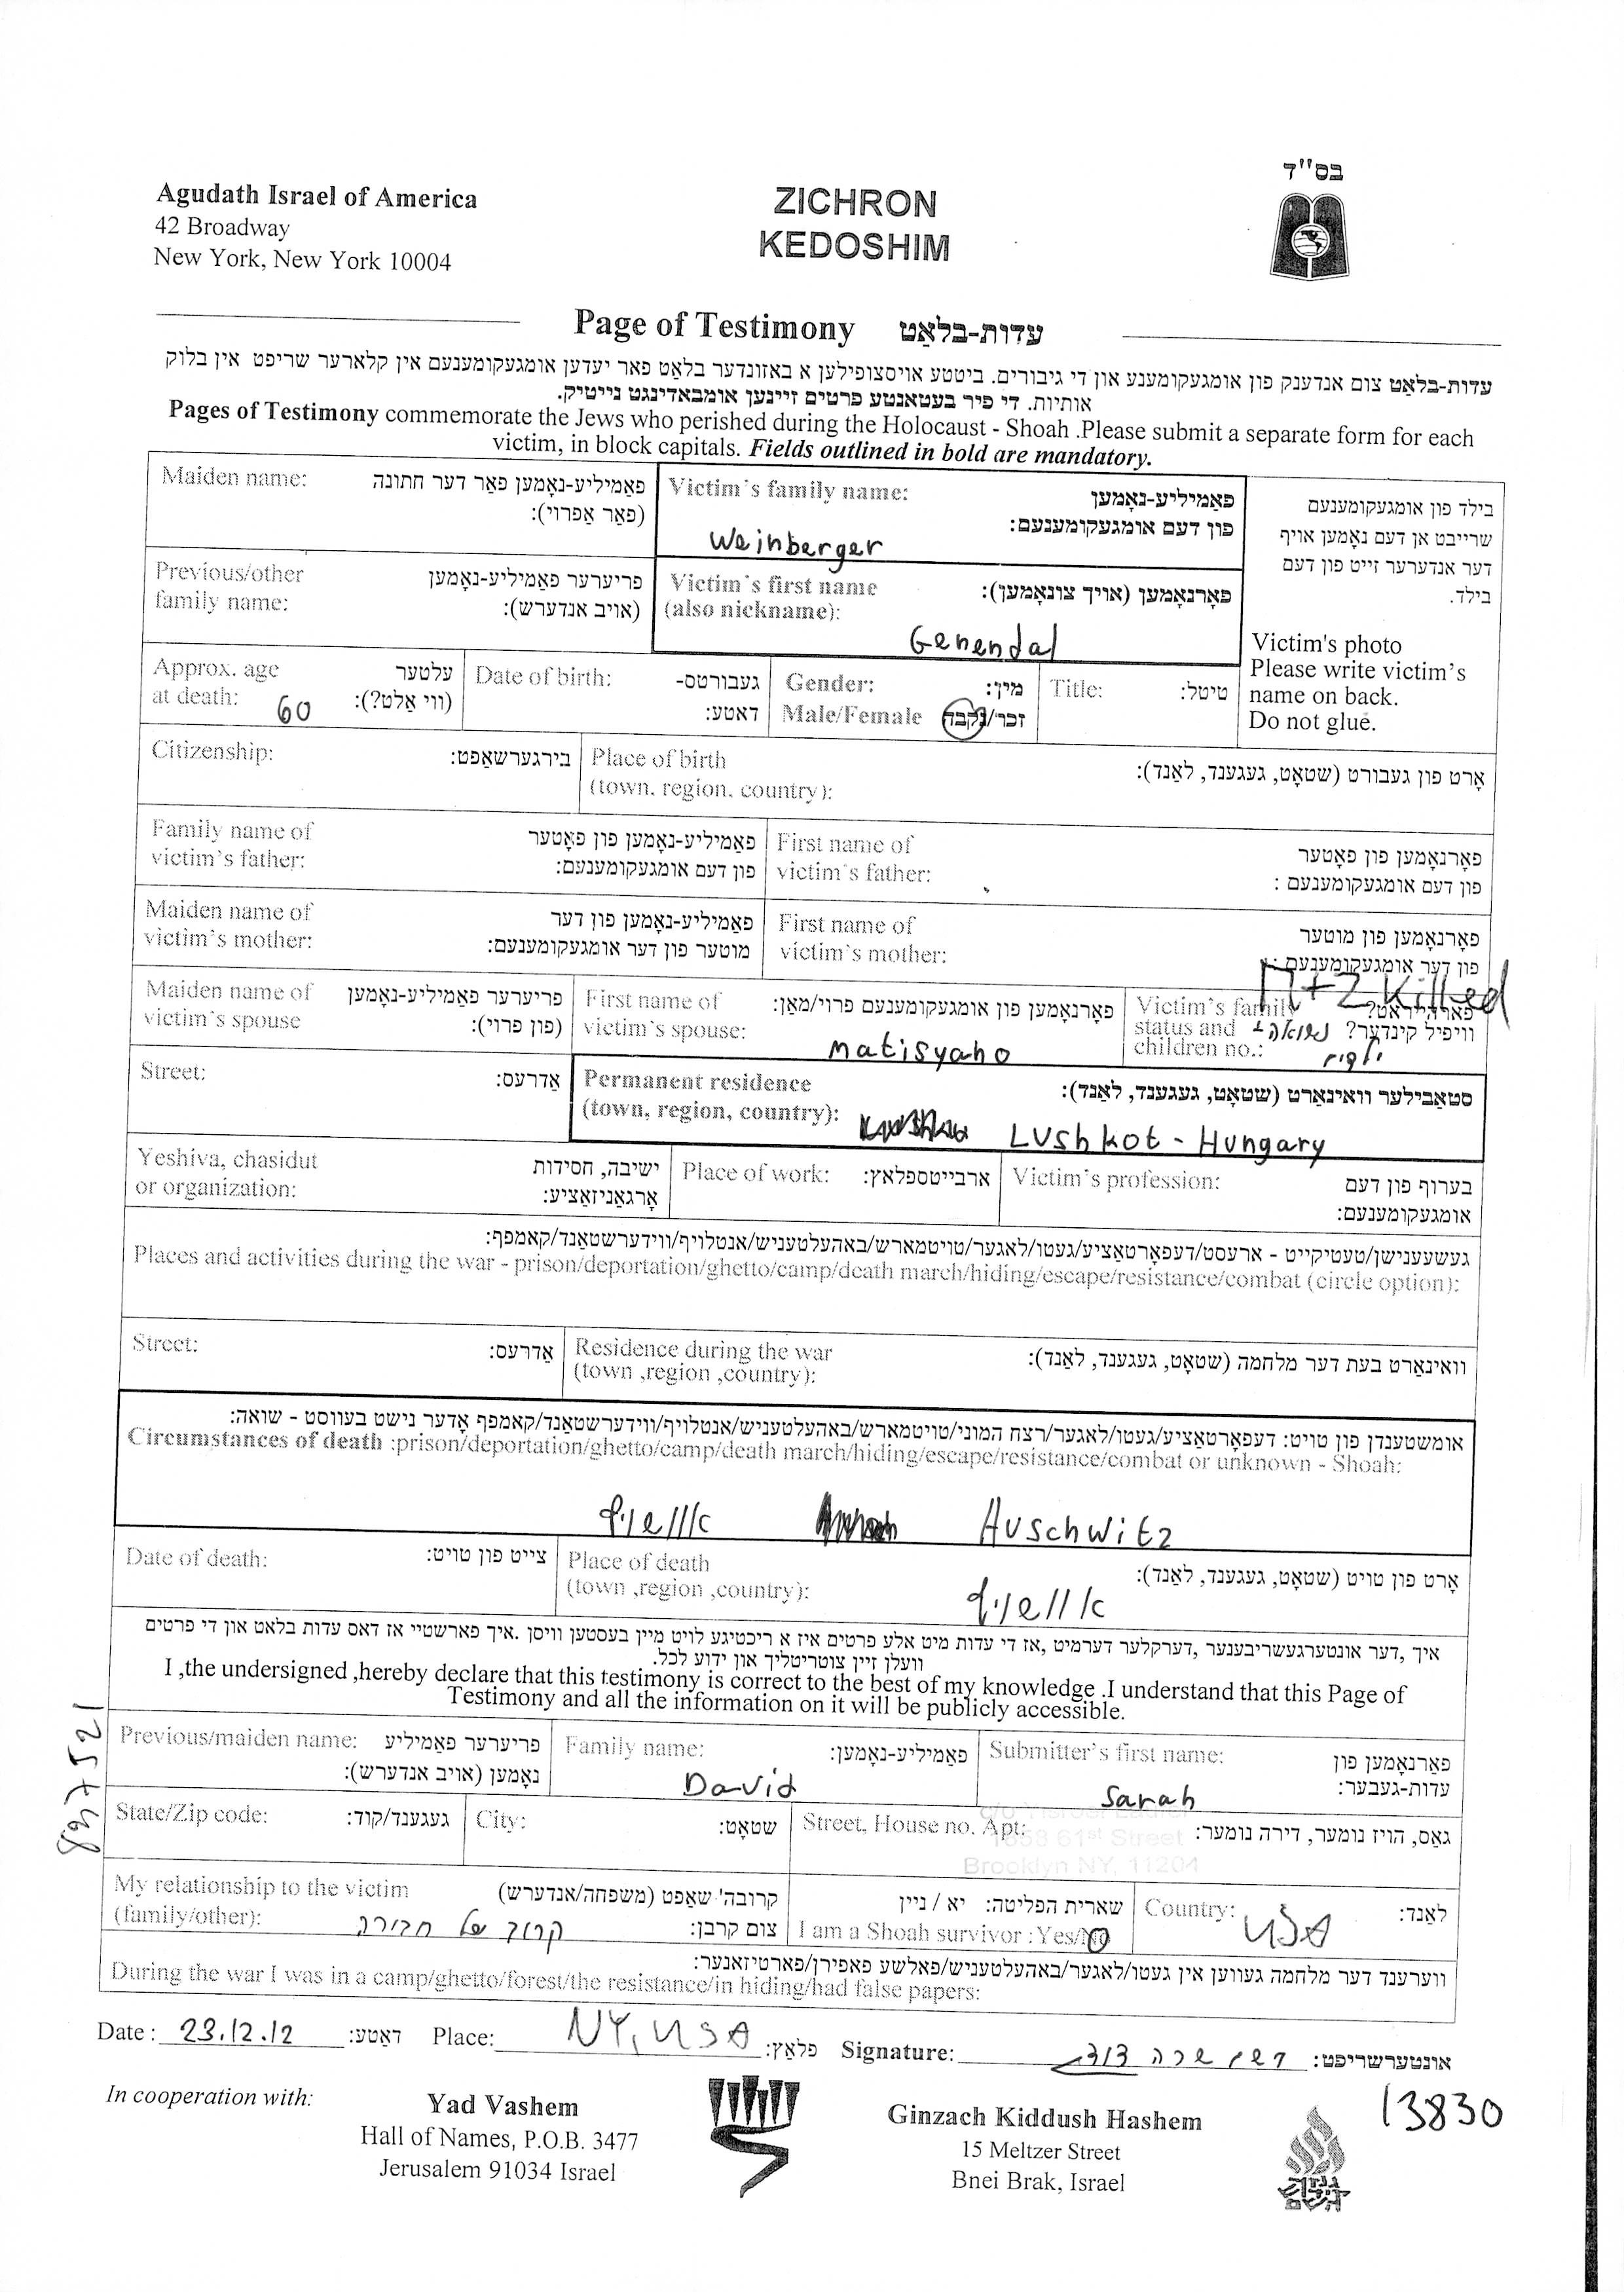 בס"ד
Agudath Israel of America
42 Broadway
New York, New York 10004
ZICHRON
KEDOSHIM
Page of Testimony עדות-בלאַט
עדות-בלאַט צום אנדענק פון אומגעקומענע און די גיבורים. ביטטע אויסצופילען א באזונדער בלאַט פאר יעדען אומגעקומענעם אין קלארער שריפט אין בלוק
אותיות. די פיר בעטאנטע פרטים זיינען אומבאדינגט נייטיק.
Pages of Testimony commemorate the Jews who perished during the Holocaust - Shoah .Please submit a separate form for each
victim, in block capitals. Fields outlined in bold are mandatory.
Maiden name: פאַמיליע-נאָמען פאַר דער חתונה
(פאַר אַפרוי):
Victim's family name: פאַמיליע-נאָמען
פון דעם אומגעקומענעם:
Weinberger
בילד פון אומגעקומענעם
שרייבט אן דעם נאָמען אויף
דער אנדערער זייט פון דעם
בילד.
Victim's photo
Please write victim's
name on back.
Do not glue.
Previous/other פריערער פאַמיליע-נאָמען
family name: (אויב אנדערש):
Victim's first name פאָרנאָמען (אויך צונאָמען):
(also nickname):
Genendal
Approx. age עלטער
at death: 60 (ווי אַלט?):
Date of birth: געבורטס-
דאטע:
Gender: מין:
Male/Female זכר/נקבה
Title: טיטל:
Citizenship: בירגערשאַפט:
Place of birth אָרט פון געבורט (שטאָט, געגענד, לאַנד):
(town, region, country):
Family name of פאַמיליע-נאָמען פון פאָטער
victim's father: פון דעם אומגעקומענעם:
First name of פאָרנאָמען פון פאָטער
victim's father: פון דעם אומגעקומענעם :
Maiden name of פאַמיליע-נאָמען פון דער
victim's mother: מוטער פון דער אומגעקומענעם:
First name of פאָרנאָמען פון מוטער
victim's mother: פון דער אומגעקומענעם :
M+2 killed
Maiden name of פריערער פאַמיליע-נאָמען
victim's spouse (פון פרוי):
First name of פאָרנאָמען פון אומגעקומענעם פרוי/מאַן:
victim's spouse:
Matisyaho
Victim's family פארהייראט?
status and נשואה 2 וויפיל קינדער?
children no.: ילדים
Street: אַדרעס:
Permanent residence סטאַבילער וואינאָרט (שטאָט, געגענד, לאַנד):
(town, region, country):
Lushkot - Hungary
Yeshiva, chasidut ישיבה, חסידות
or organization: אָרגאַניזאַציע:
Place of work: ארבייטספלאץ:
Victim's profession: בערוף פון דעם
אומגעקומענעם:
געשעענישן/טעטיקייט - ארעסט/דעפאָרטאַציע/געטו/לאגער/טויטמארש/באהעלטעניש/אנטלויף/ווידערשטאַנד/קאמפף:
Places and activities during the war - prison/deportation/ghetto/camp/death march/hiding/escape/resistance/combat (circle option):
Street: אַדרעס:
Residence during the war וואינאָרט בעת דער מלחמה (שטאָט, געגענד, לאַנד):
(town ,region ,country):
אומשטענדן פון טויט: דעפאָרטאַציע/געטו/לאגער/רצח המוני/טויטמארש/באהעלטעניש/אנטלויף/ווידערשטאַנד/קאמפף אָדער נישט בעווסט - שואה:
Circumstances of death :prison/deportation/ghetto/camp/death march/hiding/escape/resistance/combat or unknown - Shoah:
אוושויץ Auschwitz
Date of death: צייט פון טויט:
Place of death אָרט פון טויט (שטאָט, געגענד, לאַנד):
(town ,region ,country):
אוושויץ
איך ,דער אונטערגעשריבענער ,דערקלער דערמיט ,אז די עדות מיט אלע פרטים איז א ריכטיגע לויט מיין בעסטען וויסן .איך פארשטיי אז דאס עדות בלאט און די פרטים
וועלן זיין צוטריטליך און ידוע לכל.
I ,the undersigned ,hereby declare that this testimony is correct to the best of my knowledge .I understand that this Page of
Testimony and all the information on it will be publicly accessible.
897521
Previous/maiden name: פריערער פאַמיליע
נאָמען (אויב אנדערש):
Family name: פאַמיליע-נאָמען:
David
Submitter's first name: פאַרנאָמען פון
עדות-געבער:
Sarah
State/Zip code: געגענד/קוד:
City: שטאָט:
Street, House no. Apt: גאַס, הויז נומער, דירה נומער:
1658 61st Street
Brooklyn NY, 11204
My relationship to the victim קרובה'שאַפט (משפחה/אנדערש)
(family/other): קרוב של חבורה צום קרבן:
שארית הפליטה: יא / ניין
I am a Shoah survivor :Yes/No
Country: USA לאַנד:
ווערענד דער מלחמה געווען אין געטו/לאגער/באהעלטעניש/פאלשע פאפירן/פארטיזאנער:
During the war I was in a camp/ghetto/forest/the resistance/in hiding/had false papers:
Date : 23.12.12 דאטע: Place: NY, USA פלאַץ: Signature: שרה דוד אונטערשריפט:
In cooperation with:
Yad Vashem
Hall of Names, P.O.B. 3477
Jerusalem 91034 Israel
Ginzach Kiddush Hashem
15 Meltzer Street
Bnei Brak, Israel
גנזך
קידוש
השם
13830